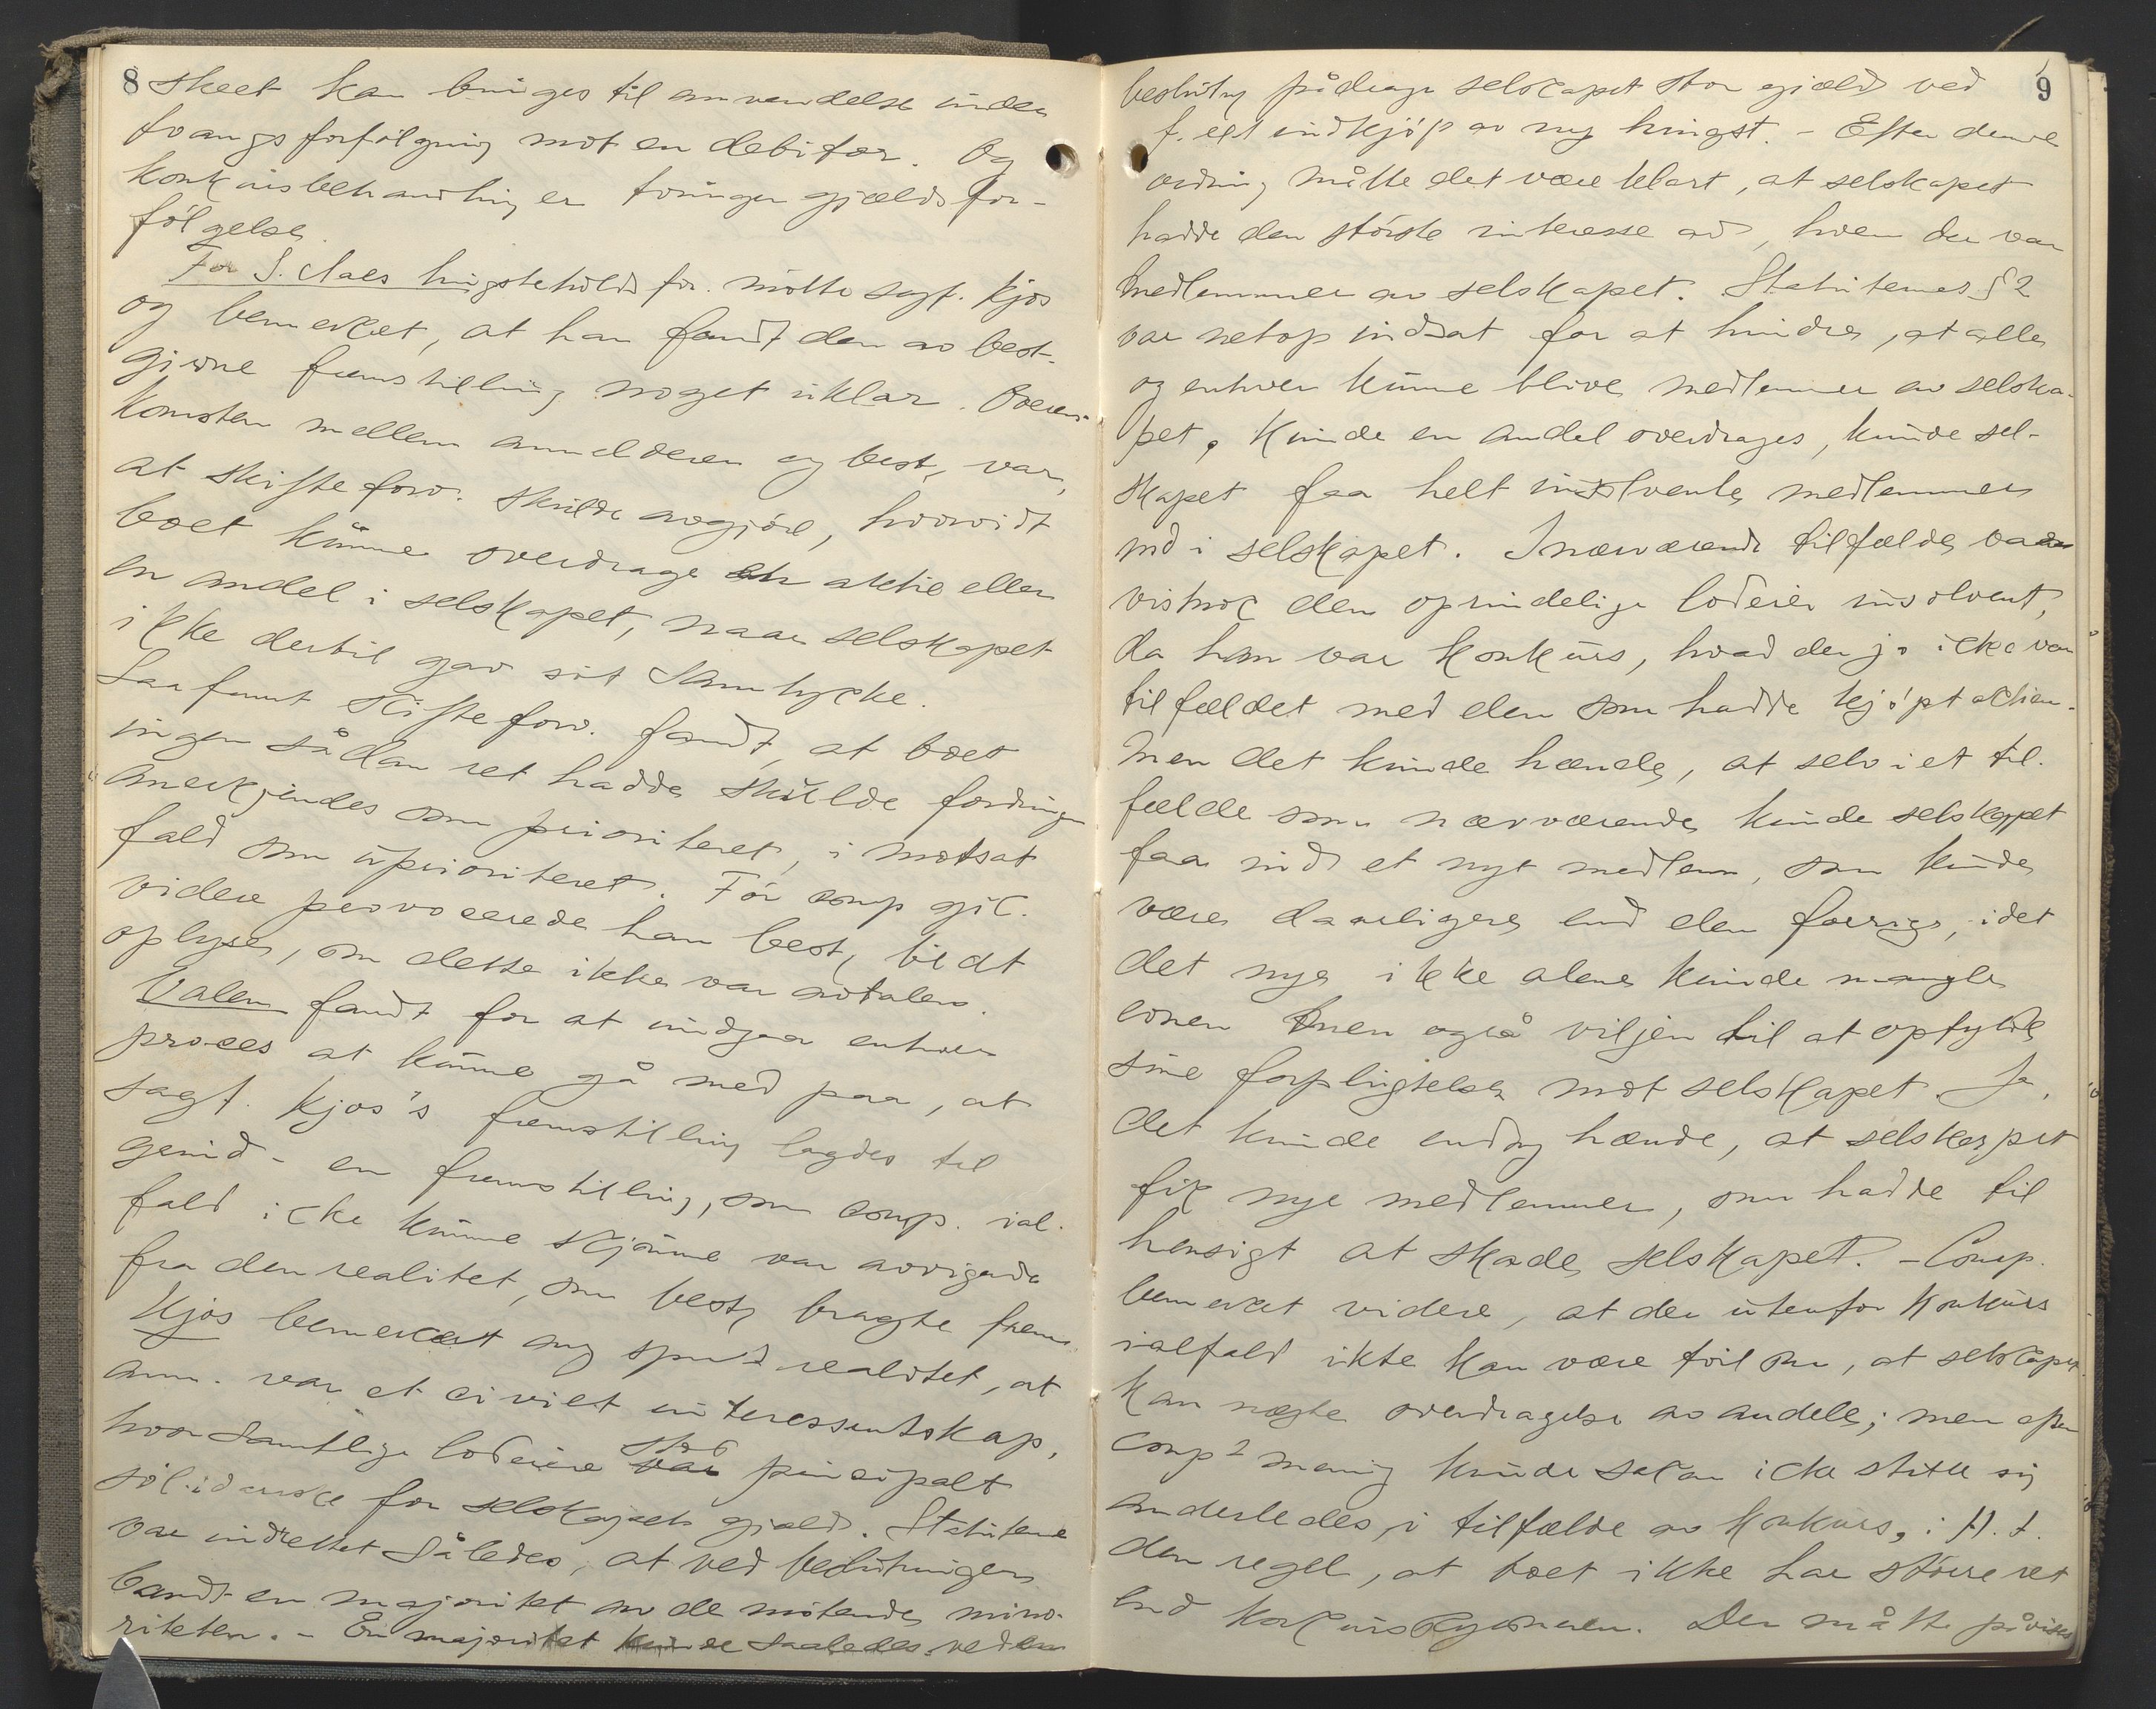 8
skeet kan bringes til anvendelse under
tvangsforfølgning mot en debitor. Og
konkursbehandling er tvungen gjælds for-
følgelse.
For S. Aaes hingsteholdsfor. møtte sagf. Kjos
og bemerket, at han fandt den av best.
givne fremstilling noget uklar. Overens-
komsten mellem anmelderen og best, var,
at skifteforv. skulde avgjøre, hvorvidt
boet kunne overdrage en aktie eller
en andel i selskapet, naar selskapet
ikke dertil gav sit samtykke.
Saafremt skifteforv. fandt, at boet
ingen sådan ret hadde skulde fordringen
anerkjendes som prioriteret, i motsat
fald som uprioriteret. Før comp gik
videre provocerede han best, til at
oplyse, om dette ikke var avtalen.
Valen fandt for at undgaa enhver
proces at kunne gå med paa, at
sagf. Kjos's fremstilling lagdes til
grund - en fremstilling, som comp. ial-
fald icke kunne skjønne var avvigende
fra den realitet, som best, bragte frem.
Kjos bemerket ang spm.s realitet, at
anm. var et civilt interessentskap,
hvor samtlige lodeiere stod principalt
solidariske for selskapets gjæld. Statutene
var indrettet således, at ved beslutninger
bandt en majoritet av de møtende mino-
riteten. - En majoritet kunde saaledes ved en
9
beslutng pådrage selskapet stor gjæld ved
f. ext indkjøp av ny hingst. - Efter denne
ordning måtte det være klart, at selskapet
hadde den største interesse av, hvem der var
medlemmer av selskapet. Statuternes § 2
var netop indsat for at hindre, at alle
og enhver kunne blive medlemmer av selska-
pet. Kunde en andel overdrages, kunde sel-
skapet faa helt insolvente medlemmer
ind i selskapet. I nærværende tilfælde var
vistnok den oprindelige lodeier insolvent,
da han var konkurs, hvad der jo icke var
tilfældet med den som hadde kjøpt aktien.
Men det kunde hænde, at selv i et til-
fælde som nærværende kunde selskapet
faa ind et nyt medlem, som kunde
være daarligere end den forrige, idet
det nye ikke alene kunde mangle
evnen men også viljen til at opfylde
sine forpligtelser mot selskapet. Ja,
det kunde endog hænde, at selskapet
fik nye medlemmer, som hadde til
hensigt at skade selskapet. - Comp.
bemerket videre, at der utenfor konkurs
ialfald ikke kan være tvil om, at selskapet
kan nægte overdragelse av andele; men efter
comps mening kunde saken icke stille sig
anderledes, i tilfælde av konkurs, i H. t.
den regel, at boet ikke har større ret
end konkursskyldneren. Der måtte påvises